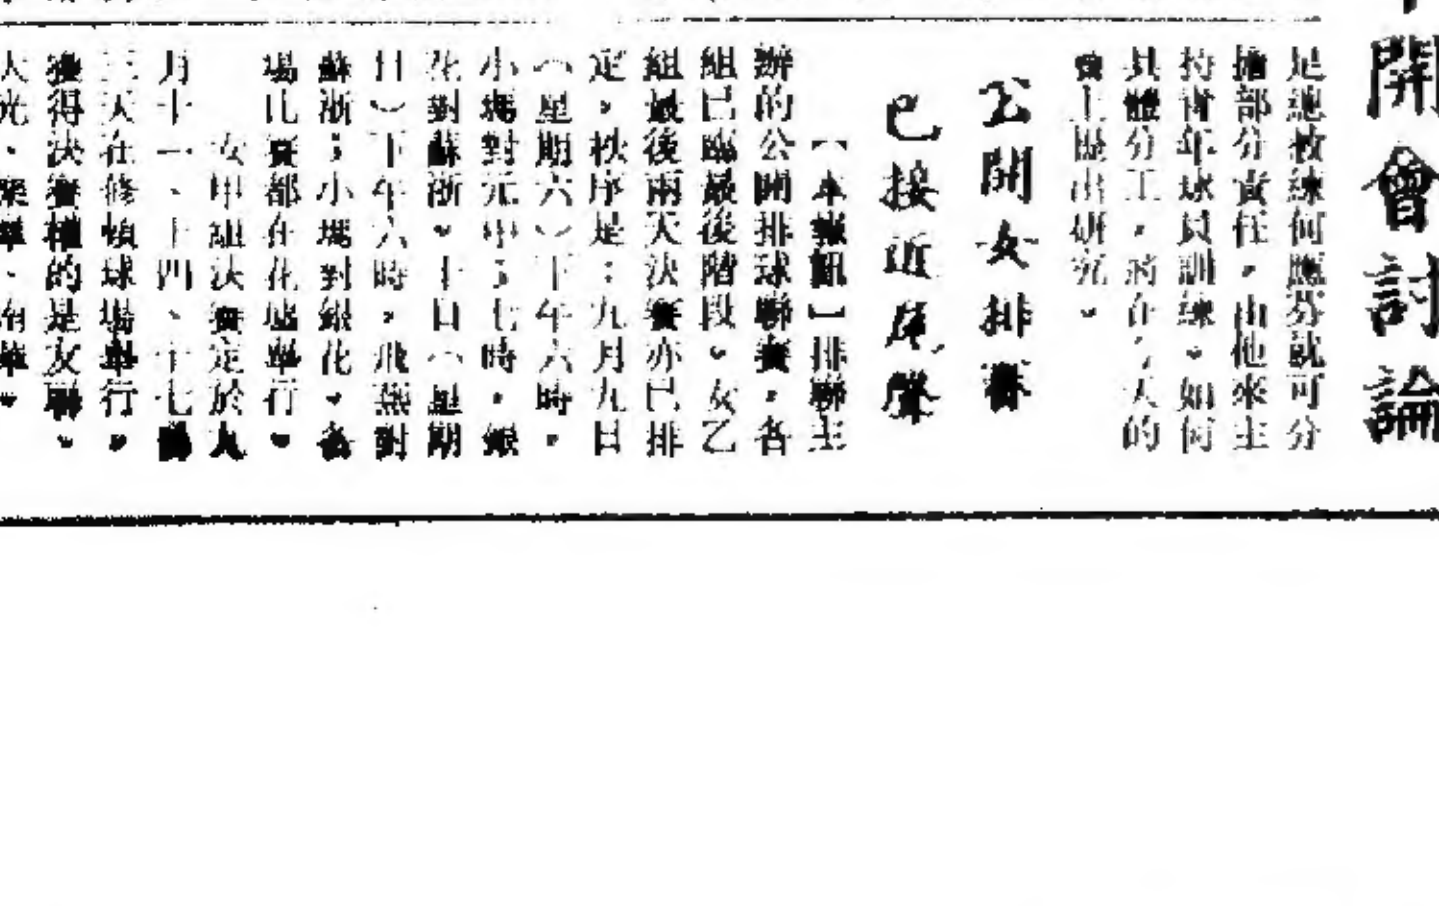 開會討論
是總教練何應芬就可分
擔部分責任，由他來主
持青年球員訓練。如何
具體分工，將在今天的
會上提出研究。
公開女排賽
已接近尾聲
【本報訊】排聯主
辦的公開排球聯賽，各
組已臨最後階段。女乙
組最後兩天決賽亦已排
定，秩序是：九月九日
（星期六）下午六時，
小馬對元中；七時，銀
花對蘇浙。十日（星期
日）下午六時，飛燕對
蘇浙；小馬對銀花。各
場比賽都在花墟舉行。
女甲組決賽定於八
月十一、十四、十七
三天在修頓球場舉行。
獲得決賽權的是友聯、
大光、樂華、南華。